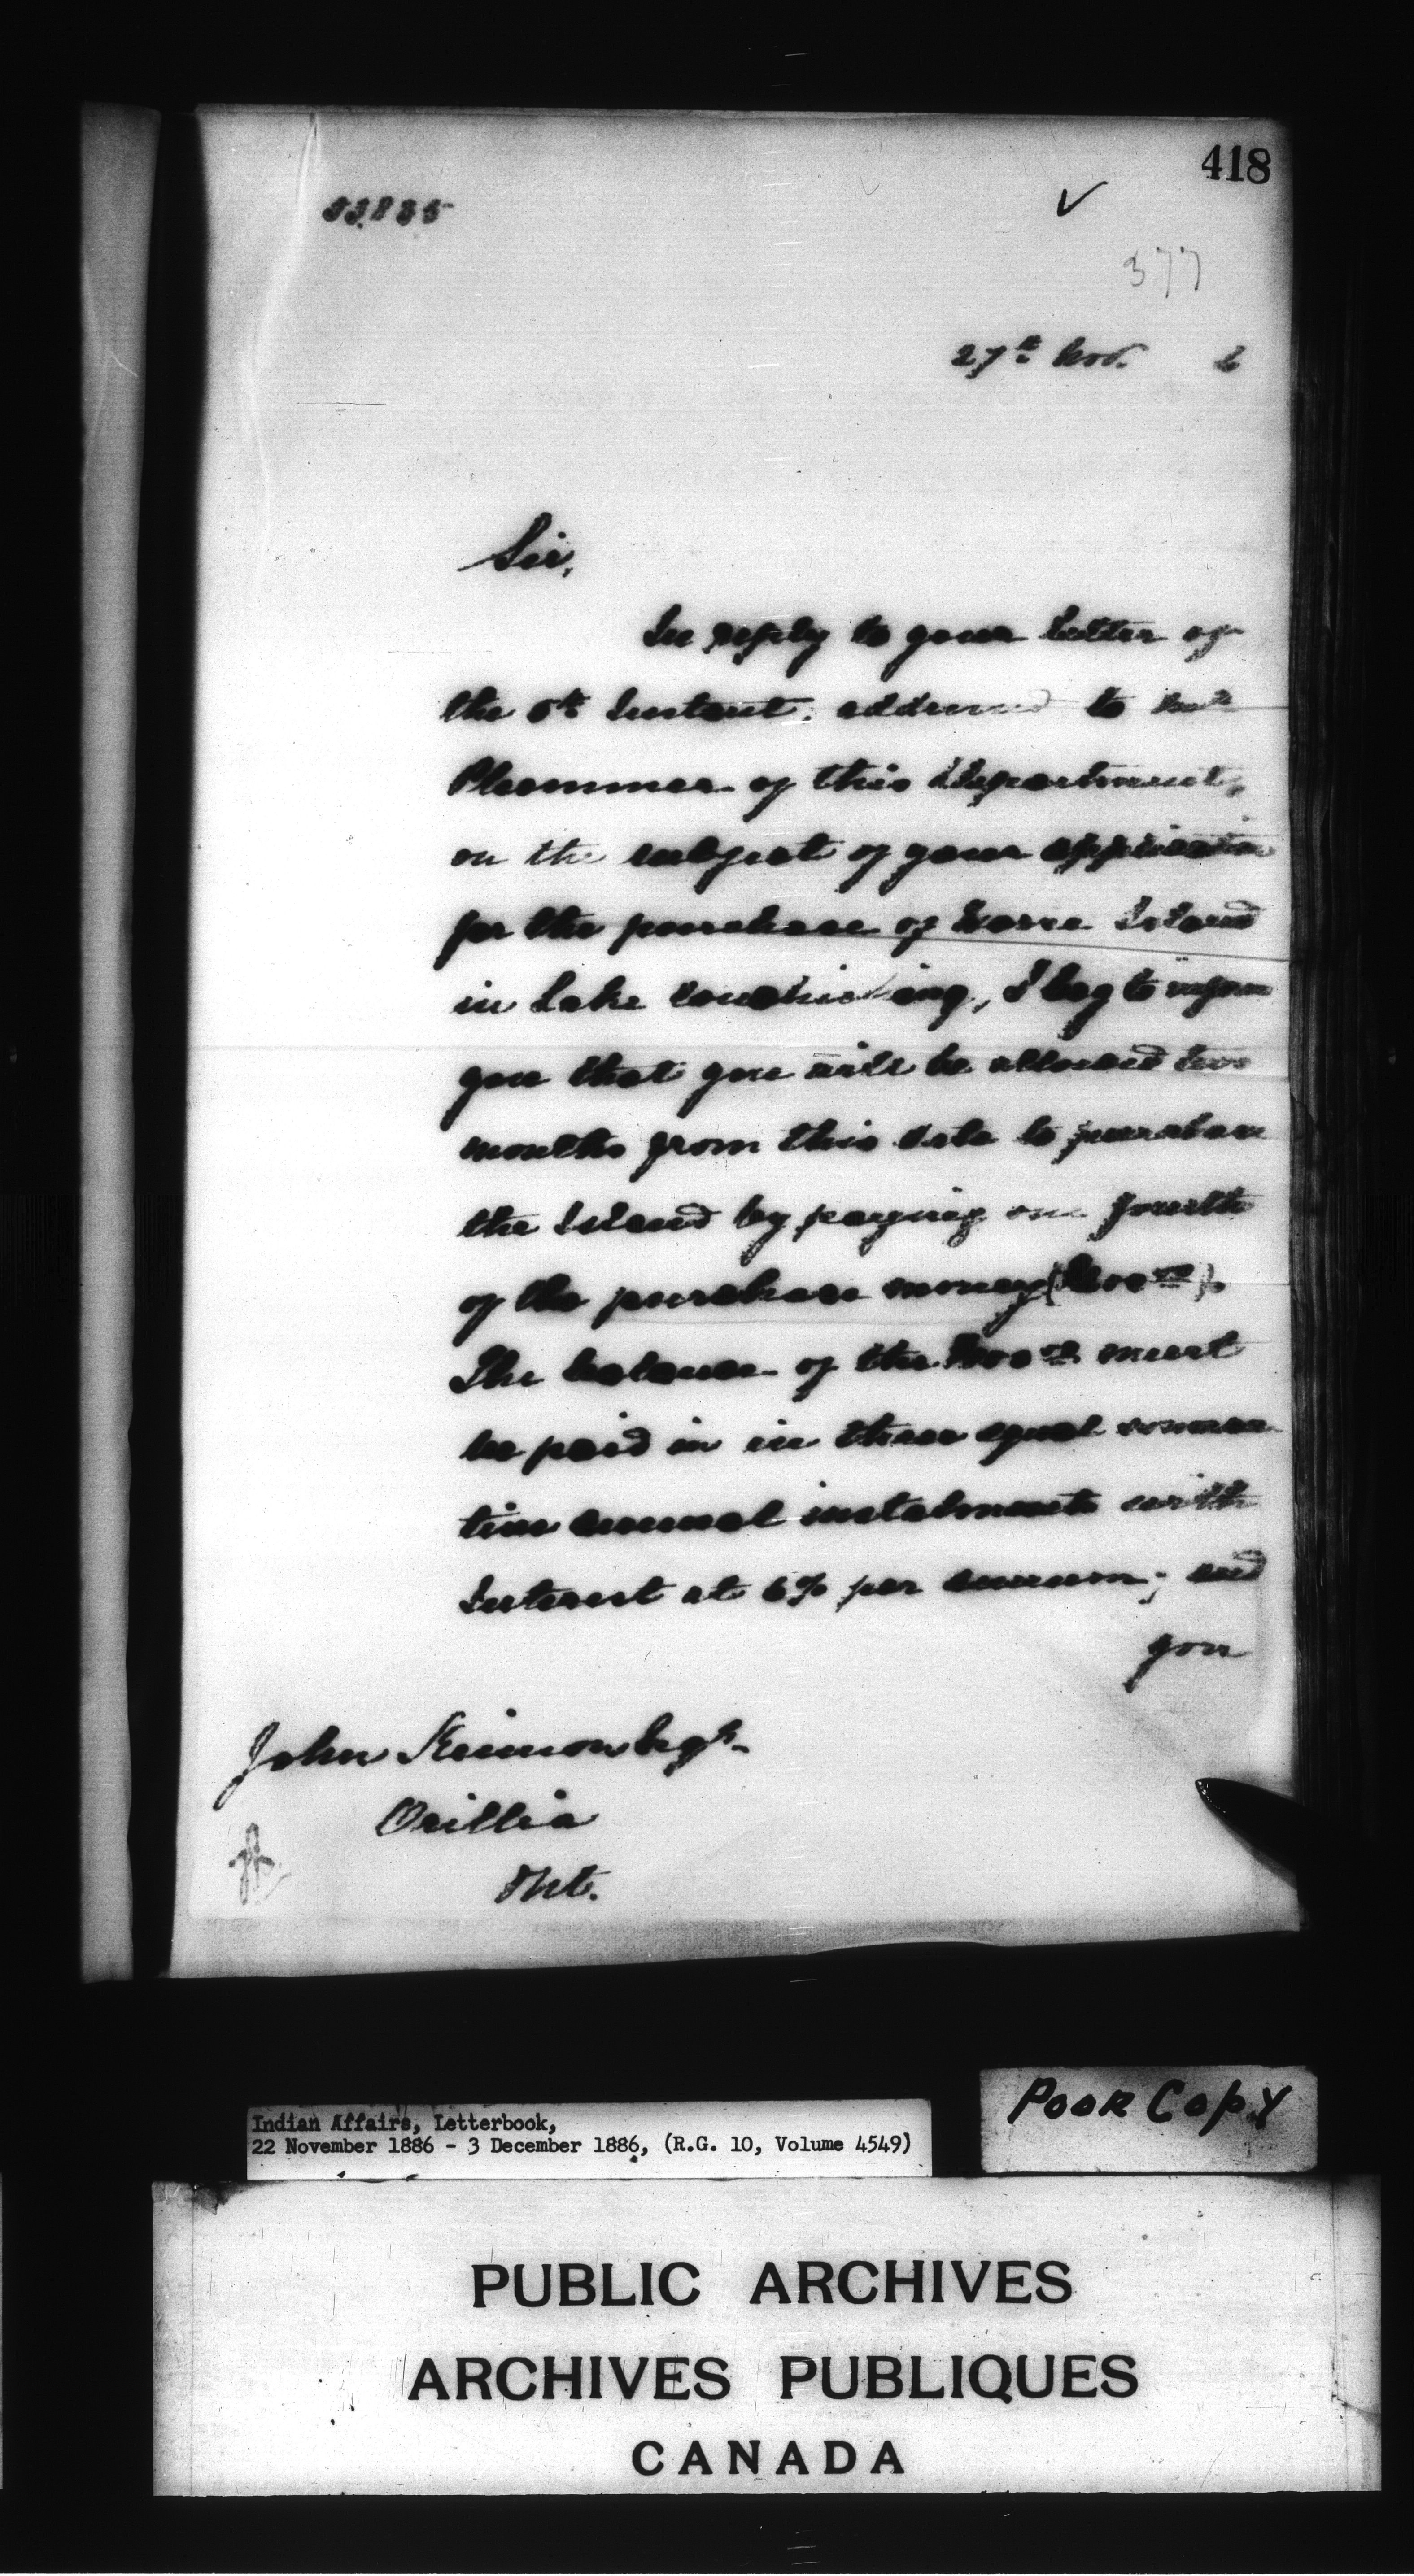 418
377
27th Nov. 6
Sir,
In reply to your letter of
the 5th Instant, addressed to
Plummer of this Department,
on the subject of your application
for the purchase of Horse Island
in Lake Couchiching, I beg to inform
you that you will be allowed two
months from this date to purchase
the Island by paying one fourth
of the purchase money
The balance of the must
be paid in in three equal consecu-
tive annual instalments with
Interest at 6% per annum; and
you
John Esqr.
Orillia
Ont.
Indian Affairs, Letterbook,
22 November 1886 - 3 December 1886, (R.G. 10, Volume 4549)
POOR COPY
PUBLIC ARCHIVES
ARCHIVES PUBLIQUES
CANADA